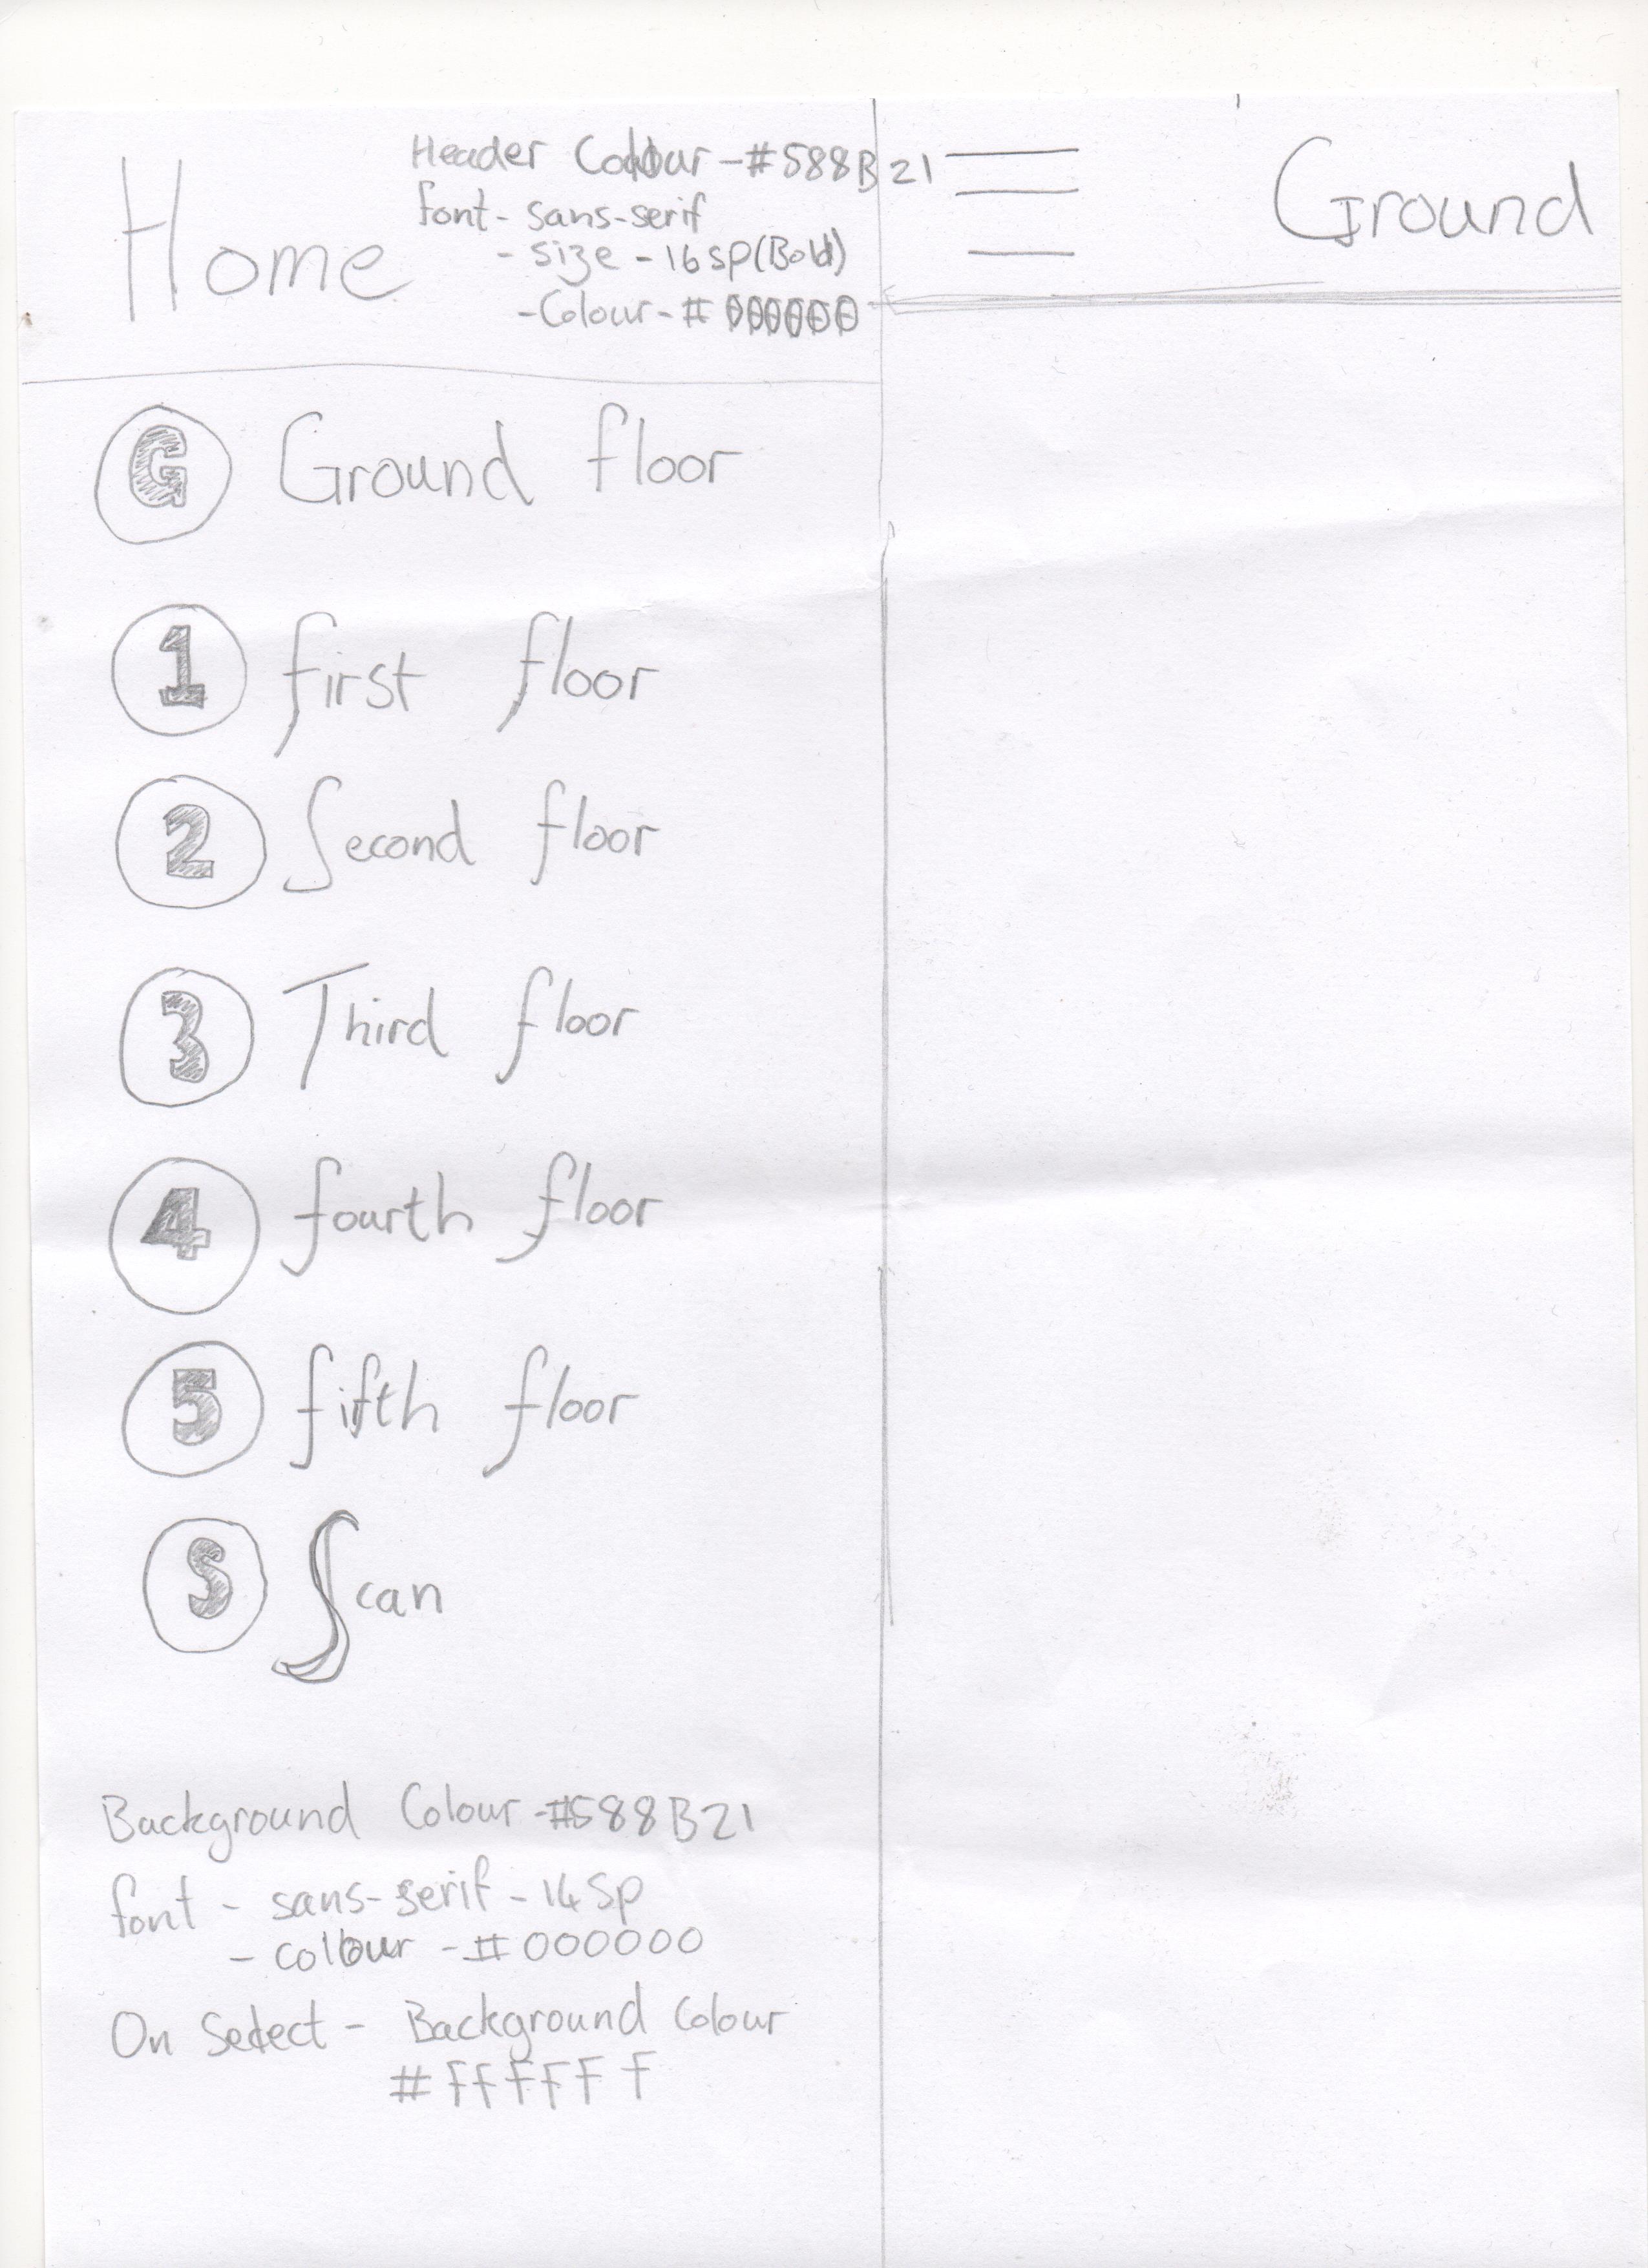 Home
Header Colour - #588B21
font - sans-serif
- size - 16sp (Bold)
- Colour - # 000000
Ground
G Ground floor
1 first floor
2 Second floor
3 Third floor
4 fourth floor
5 fifth floor
S Scan
Background Colour - #588B21
font - sans-serif - 14sp
- colour - #000000
On Select - Background Colour
#FFFFFF